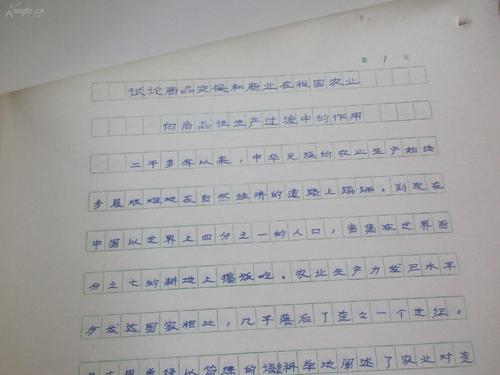 Kongfz.cn
第 1 页
试论商品交换和商业在我国农业
向商品性生产过渡中的作用
二千多年以来，中华民族的农业生产始终
步履艰难地在自然经济的道路上蹒跚。到现在
中国以世界上四分之一的人口，密集在世界百
分之七的耕地上搞饭吃。农业生产力发展水平
与发达国家相比，几乎落后了整々一个世纪。
以简练的 科学地阐述了农业对